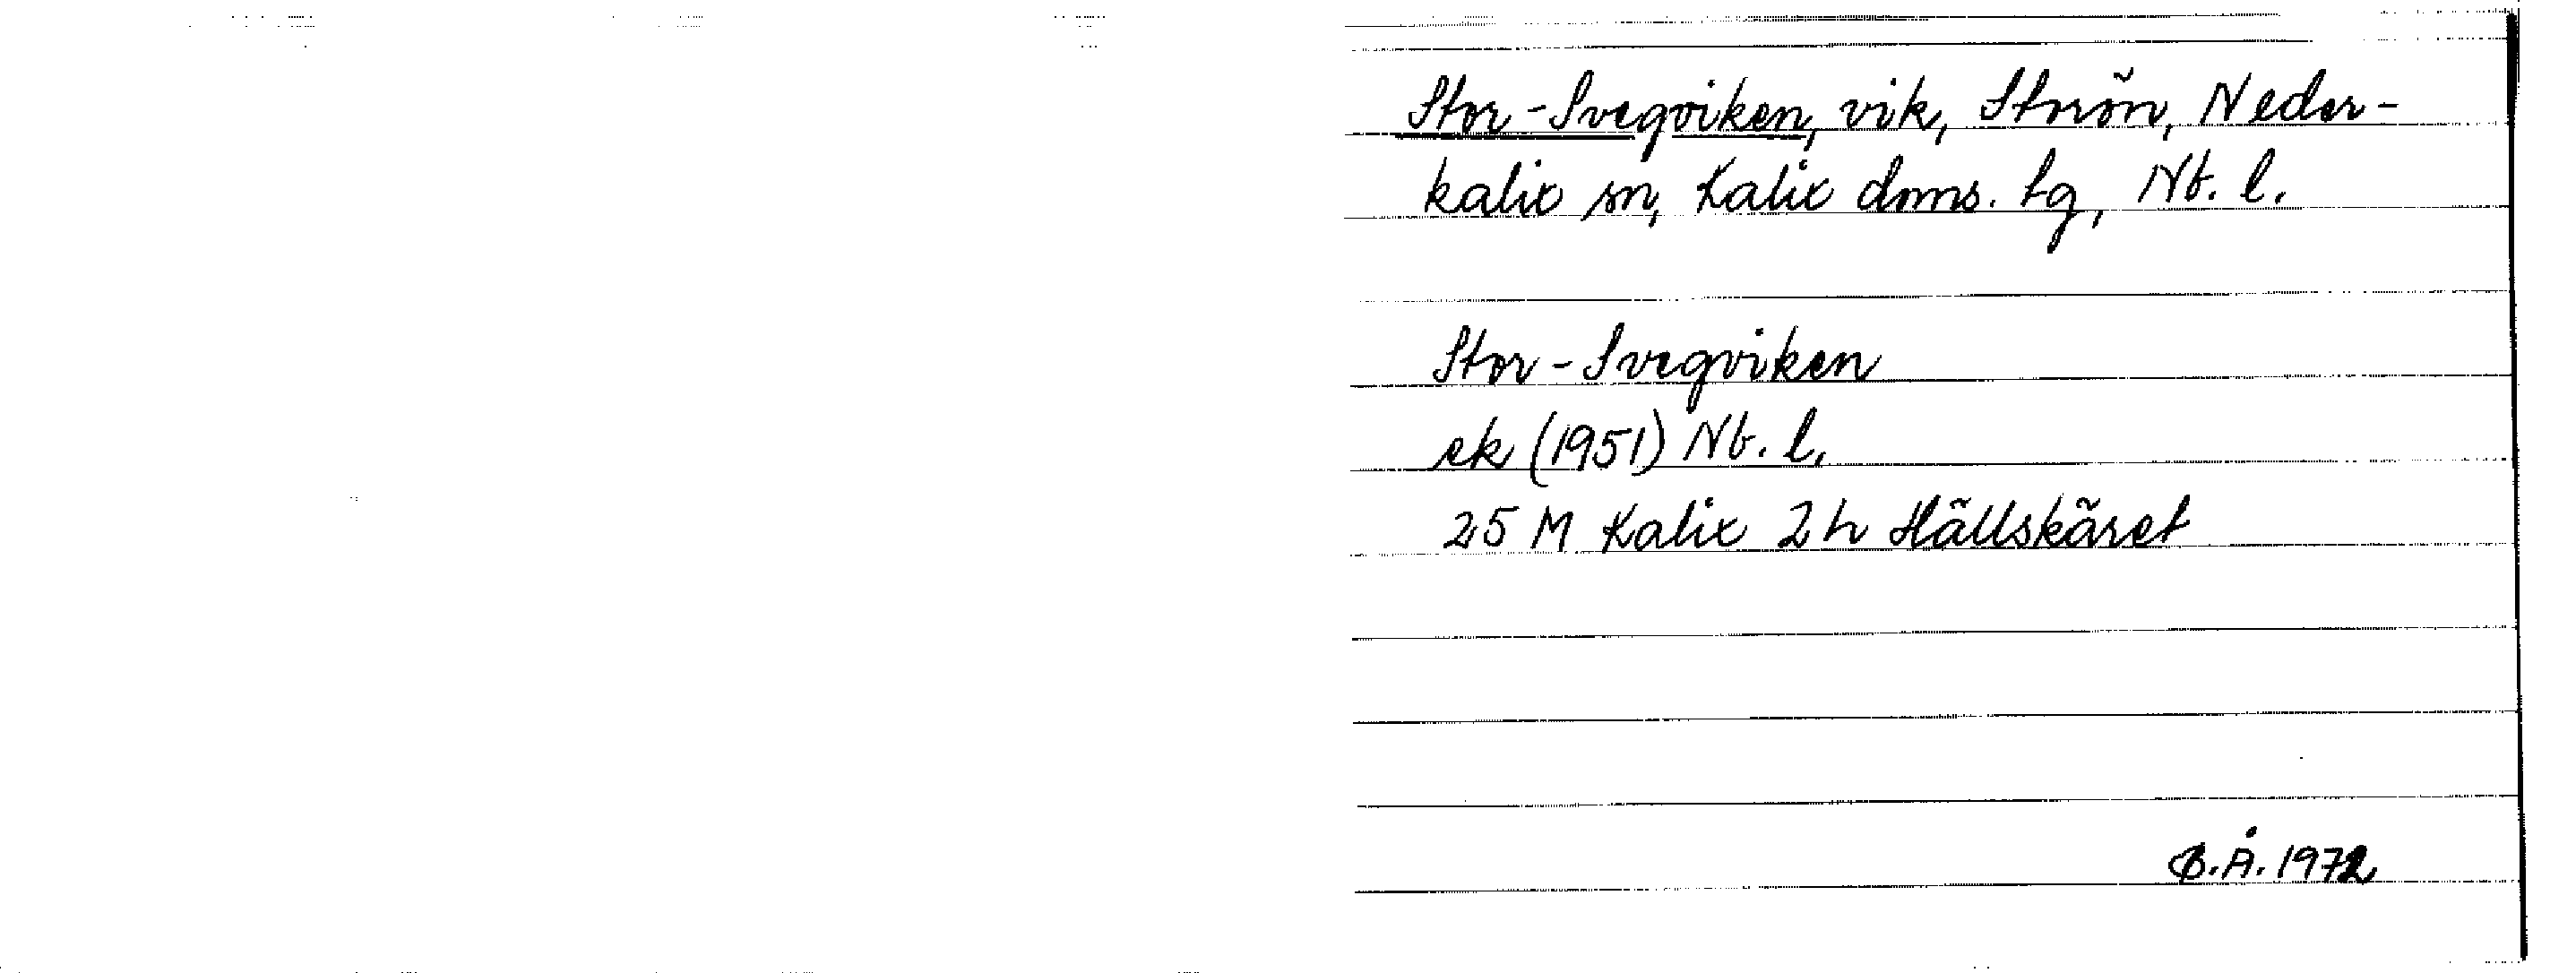 Stor-Svegviken, vik, Storön, Neder-
kalix sn, Kalix doms. tg, Nb. l.
Stor-Svegviken
ek (1951) Nb. l.
25 M Kalix 2h Hällskäret
B.Å. 1972